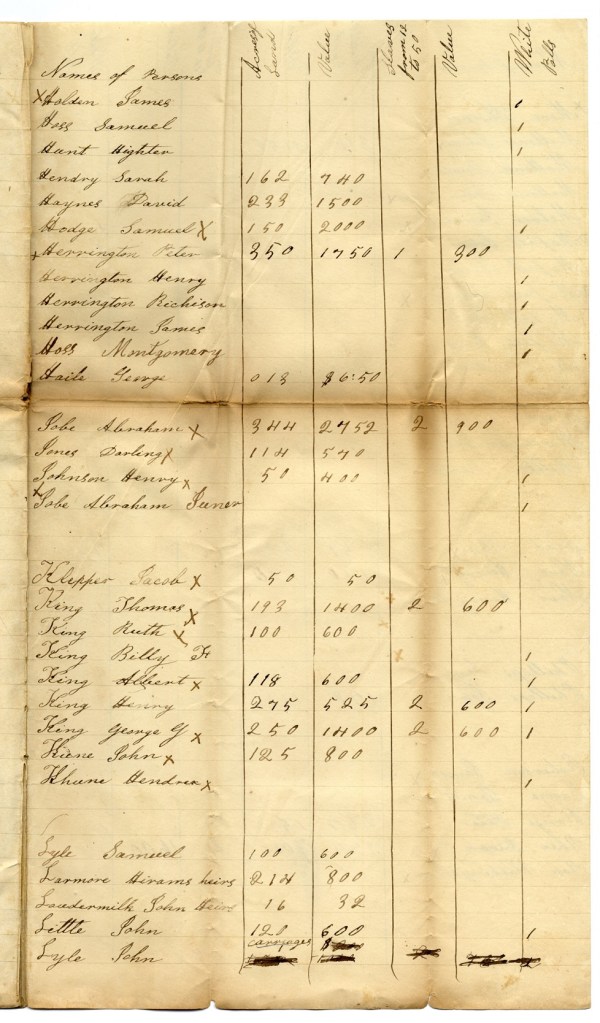 Names of Persons Acres of Land Value Slaves from 12 to 50 Value White Polls
x Holden James 1
Hoss Samuel 1
Hunt Highter 1
Hendry Sarah 162 740
Haynes David 233 1500
Hodge Samuel x 150 2000 1
x Herrington Peter 350 1750 1 300
Herrington Henry 1
Herrington Richison 1
Herrington James 1
Hoss Montgomery 1
Haile George 013 $6:50
Jobe Abraham x 344 2752 2 900
Jones Darling x 114 570
Johnson Henry x 50 400 1
x Jobe Abraham Juner 1
Klepper Jacob x 50 50
King Thomas x 193 1400 2 600
King Ruth x 100 600
King Billy F 1
King Albert x 118 600 1
King Henry 275 525 2 600 1
King George G x 250 1400 2 600 1
Kiene John x 125 800
Khune Hendrex x 1
Lyle Samuel 100 600
Larmore Hirams heirs 214 800
Loudermilk John Heirs 16 32
Little John 120 600 1
carriages
Lyle John